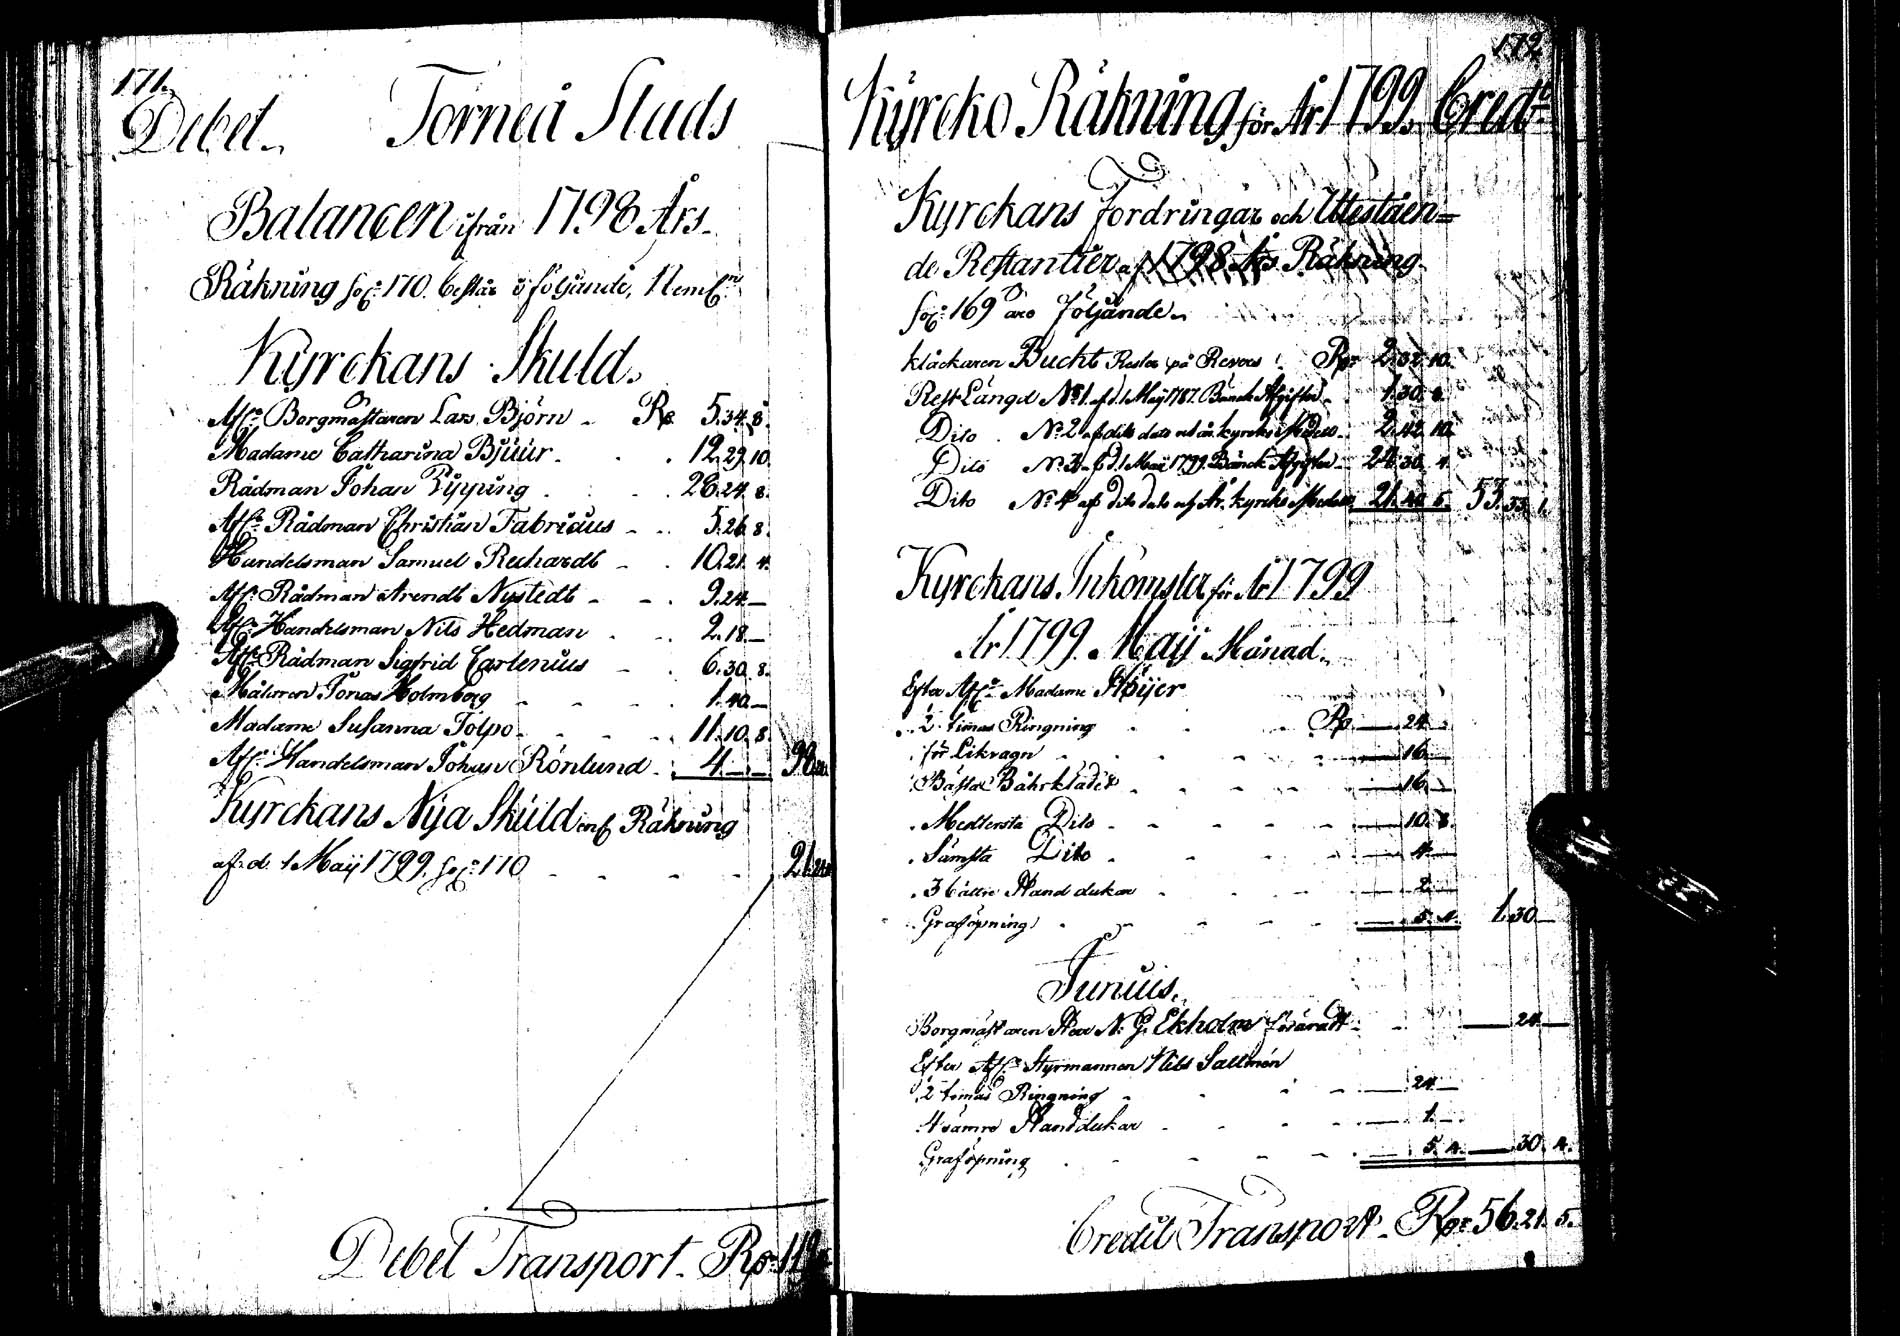 171.
Debet. Torneå Stads
Balancen ifrån 1798 Års
Räkning fol: 170. består i följande, Nembl:n
Kyrckans Skuld.
Afl: Borgmästaren Lars Björn - Rp 5.34.8.
Madame Catharina Bjuur - 12.29.10.
Rådman Johan Pipping - 28.24.8.
Afl: Rådman Christian Fabricius - 5.26.8.
Handelsman Samuel Rechardt - 10.21.4.
Afl: Rådman Arendt Nystedt - 9.24.—
Afl: Handelsman Nils Hedman - 2.18.—
Afl: Rådman Sigfrid Carlenius - 6.30.8.
Målaren Jonas Holmberg - 1.40.—
Madame Susanna Tolpo - 11.10.8.
Afl: Handelsman Johan Rönlund - 4.—.— 98.
Kyrckans Nya Skuld enl. Räkning
af d. 1 Maij 1799. fol: 170 - 21.
Debet Transport. Rp: 119
172
Kyrcko Räkning för År 1799. Credt
Kyrckans Fordringar och Uteståen=
de Restantier af 1798 Års Räkning
fol: 169 äro följande.
Klåckaren Bucht Rester på Revers! Rp 2.32.10.
Rest Längd No 1. af d. 1 Maij 1787. Bänck Afgifter - 1.30.
Dito No 2 af dito dato och år. kyrcko Medell - 2.42.10.
Dito No 3 af d. 1 Maij 1799. Bänck Afgifter - 24.30.4.
Dito No 4 af dito dato och År. kyrcko Medell 21. 5. 53.33.1.
Kyrckans Inkomster för År 1799
År 1799. Maij Månad.
Efter Afl: Madame Höijer
2 timas Ringning - Rp — 24.—
för Likvagn - — 16.—
Bästa Bårkläde - — 16.—
Medlersta Dito - — 10.8.
Sämsta Dito - — 4.—
3 bättre Handdukar - — 2.—
Graföpning - — 5.4. 1.30.—
Junius.
Borgmästaren Herr N. G. Ekholm förärat - — 24.—
Efter Afl: Styrmannen Nils Sallmén
2 timas Ringning - — 24.—
4 sämre Handdukar - — 1.—
Graföpning - — 5.4. — 30.4.
Credit Transport. Rp 56.21.5.